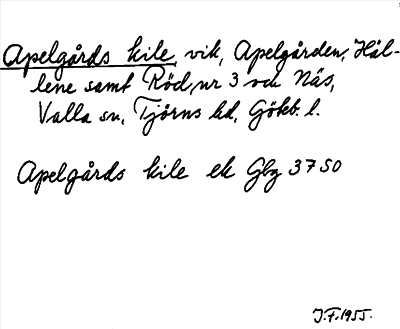 Apelgårds kile, vik, Apelgården, Häl-
lene samt Röd, nr 3 och Näs,
Valla sn, Tjörns hd, Götb. l.
Apelgårds kile ek Gbg 3750
J.F. 1955.